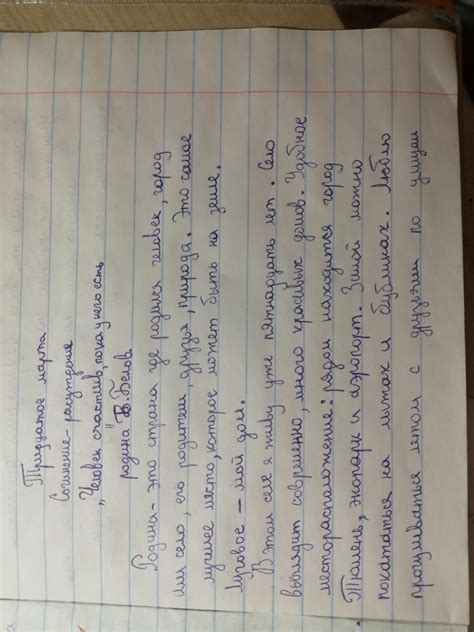 Тридцатое марта
Сочинение - рассуждение
"Человек счастлив, пока у него есть
родина" В. Белов
Родина - это страна где родился человек, город
или село, его родители, друзья, природа. Это самое
лучшее место, которое может быть на земле.
Луговое - мой дом.
В этом селе я живу уже пятнадцать лет. Село
выглядит современно, много красивых домов. Удобное
месторасположение: рядом находится город
Тюмень, экопарк и аэропорт. Зимой можно
покататься на лыжах и бубликах. Люблю
прогуливаться летом с друзьями по улицам